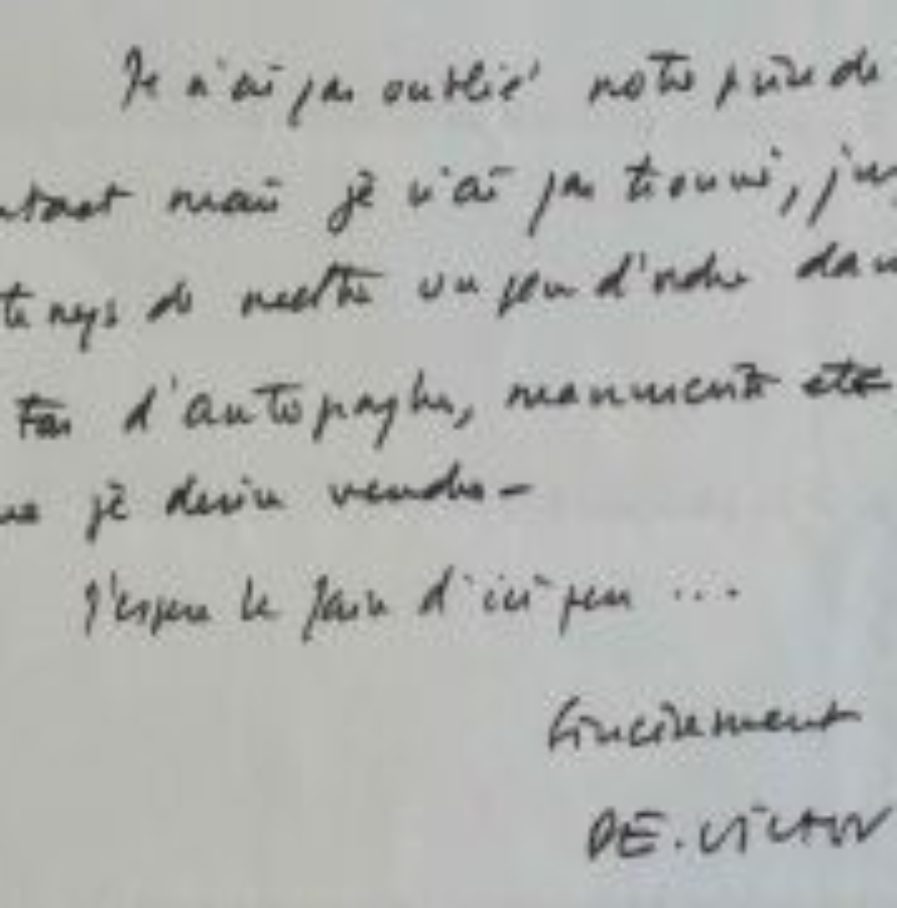 Je n'ai pas oublié notre prise de
contact mais je n'ai pas trouvé, jus
temps de mettre un peu d'ordre dans
tas d'autographes, manuscrits etc
que je désire vendre -
J'espère le faire d'ici peu ...
Sincèrement